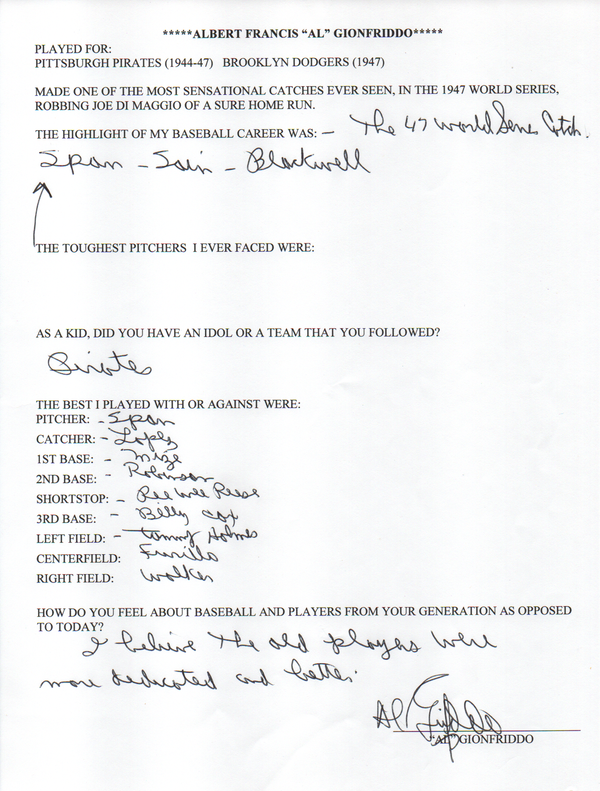 *****ALBERT FRANCIS “AL” GIONFRIDDO*****
PLAYED FOR:
PITTSBURGH PIRATES (1944-47) BROOKLYN DODGERS (1947)
MADE ONE OF THE MOST SENSATIONAL CATCHES EVER SEEN, IN THE 1947 WORLD SERIES,
ROBBING JOE DI MAGGIO OF A SURE HOME RUN.
THE HIGHLIGHT OF MY BASEBALL CAREER WAS: — The 47 World Series Catch.
Span - Sain - Blackwell
THE TOUGHEST PITCHERS I EVER FACED WERE:
AS A KID, DID YOU HAVE AN IDOL OR A TEAM THAT YOU FOLLOWED?
Pirates
THE BEST I PLAYED WITH OR AGAINST WERE:
PITCHER: - Span
CATCHER: - Lopez
1ST BASE: - Mize
2ND BASE: - Robinson
SHORTSTOP: - Pee Wee Reese
3RD BASE: - Billy Cox
LEFT FIELD: - Tommy Holmes
CENTERFIELD: Furillo
RIGHT FIELD: Walker
HOW DO YOU FEEL ABOUT BASEBALL AND PLAYERS FROM YOUR GENERATION AS OPPOSED
TO TODAY?
I beleive the old players were
more dedicated and better.
Al Gionfriddo
“AL” GIONFRIDDO